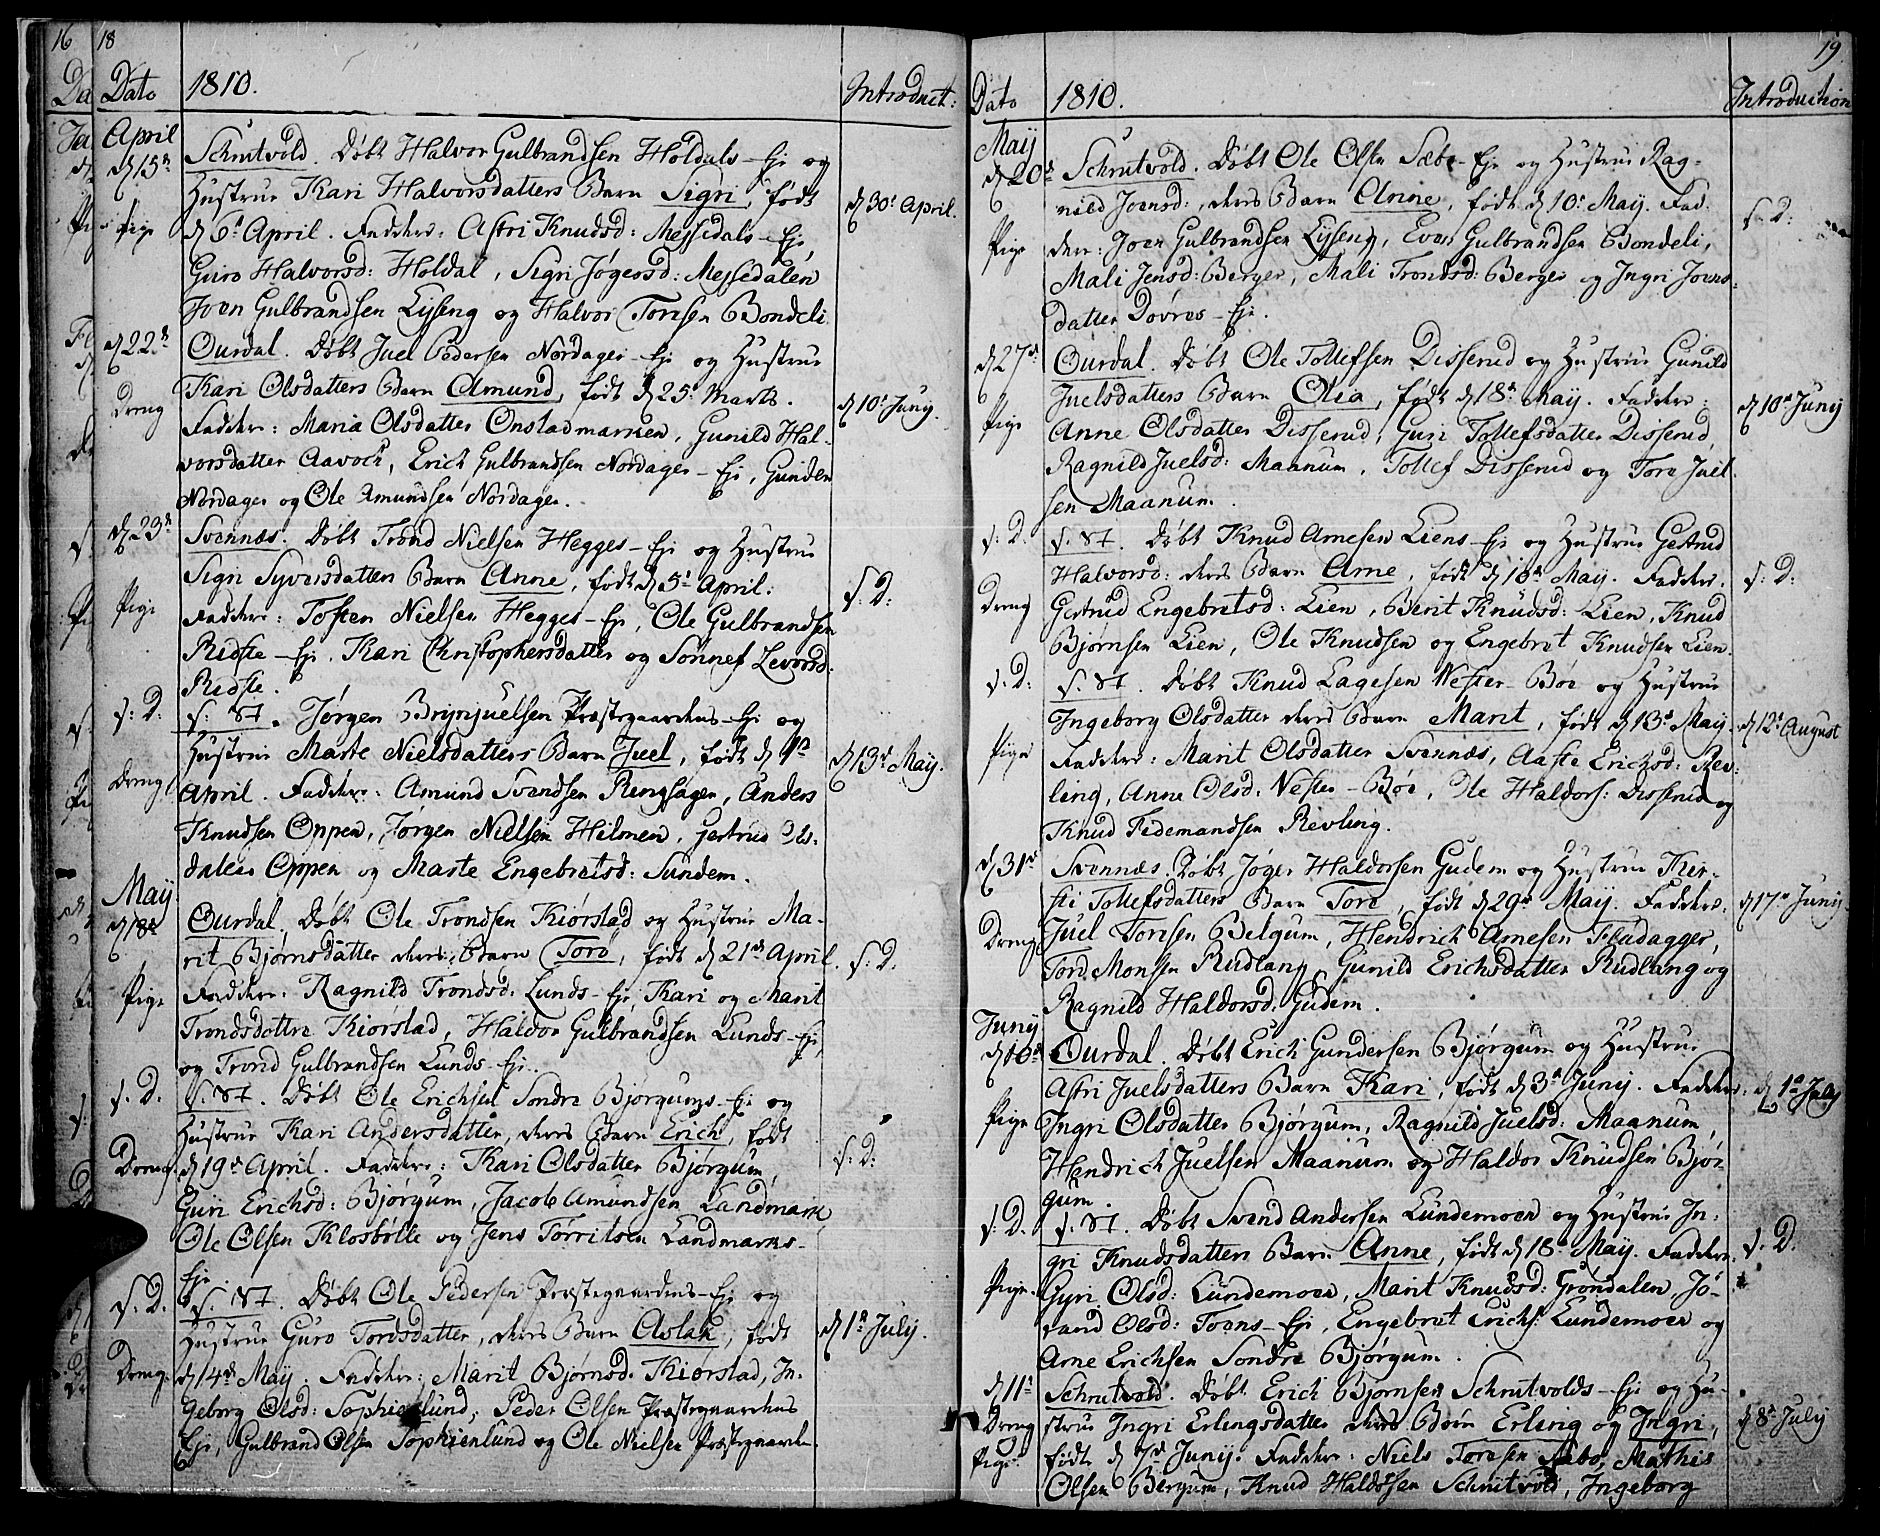 16
18
Dato 1810. Introduct:
April
d 15de Schrutvold. Døbt Halvor Gulbrandsen Holdals-Eje og
Hustrue Kari Halvorsdatters Barn Sigri, født d 30t April.
Pige d 6t April. Faddere: Astri Knudsd: Messedals-Eje,
Guro Halvorsd: Holdal, Sigri Jøgersd: Messedalen
Joen Gulbrandsen Lyseng og Halvor Toresen Bondeli.
d 22de Ourdal. Døbt Juel Pedersen Nordager-Eje og Hustrue
Kari Olsdatters Barn Amund, født d 25t Marts. d 10t Junij.
Dreng Faddere: Maria Olsdatter Onstadmarken, Gunild Hal-
vorsdatter Aavoch, Erich Gulbrandsen Nordager-Eje, Gunder
Nordager og Ole Amundsen Nordager.
d 23de Svennæs. Døbt Trond Nielsen Hegges-Eje og Hustrue
Sigri Syversdatters Barn Anne, født d 5t April. s. D:
Pige Faddere: Tosten Nielsen Hegges-Eje, Ole Gulbrandsen
Ridste-Eje, Kari Christophersdatter og Sønnef Levorsd:
Ridste.
s: D. s: St. Jørgen Brynjuelsen Præstegaardens-Eje og
Hustrue Marte Nielsdatters Barn Juel, født d 1te d 13de May.
Dreng April. Faddere: Amund Svendsen Ringsager, Anders
Knudsen Oppen, Jørgen Nielsen Hilmen, Gertrud Ols-
datter Oppen og Marte Engebretsd: Sundem.
May
d 18de Ourdal. Døbt Ole Trondsen Kiørstad og Hustrue Ma-
rit Bjørnsdatter deres Barn Torø, født d 21de April. s. D.
Pige Faddere: Ragnild Trondsd: Lunds-Eje, Kari og Marit
Trondsdøttre Kiørstad, Haldor Gulbrandsen Lunds-Eje,
og Trond Gulbrandsen Lunds-Eje.
s. D. s. St. Døbt Ole Erichsen Søndre Bjørgums-Eje og
Hustrue Kari Andersdatter, deres Barn Erich, født
Dreng d 19de April. Faddere: Kari Olsdatter Bjørgum, s: D:
Guri Erichsd: Bjørgum, Jacob Amundsen Landmark,
Ole Olsen Klosbølle og Jens Tørritsen Landmarks-
Eje.
s. D. s. St. Døbt Ole Pedersen Præstegaardens-Eje og
Hustrue Guro Tordsdatter, deres Barn Aslak, født d 1te July.
Dreng d 14de May. Faddere: Marit Bjørnsd. Kiørstad, In-
geborg Olsd: Sophienlund, Peder Olsen Præstegaardens
Eje, Gulbrand Olsen Sophienlund og Ole Nielsen Præstegaarden.
19
Dato 1810. Introduction
Maij
d 20de Schrutvold. Døbt Ole Olsen Sæbe-Eje og Hustrue Rag-
nild Joensd:, deres Barn Anne, født d 10t May. Fad- s. D:
Pige dere: Joen Gulbrandsen Lyseng, Even Gulbrandsen Bondeli,
Mali Jensd: Berger, Mali Trondsd: Berger og Ingri Joens-
datter Døvres-Eje.
d 27de Ourdal. Døbt Ole Tollefsen Disserud og Hustrue Gunild
Juelsdatters Barn Olia, født d 18de Maij. Faddere: d 10de Junij
Pige Anne Olsdatter Disserud, Guri Tollefsdatter Disserud,
Ragnild Juelsd: Maanum, Tollef Disserud og Tore Juel-
sen Maanum.
s: D. s. St. Døbt Knud Arnesen Liens-Eje og Hustrue Gertrud
Halvorsd: deres Barn Arne, født d 18de May. Faddere. s: D:
Dreng Gertrud Engebretsd: Lien, Berit Knudsd: Lien, Knud
Bjørnsen Lien, Ole Knudsen og Engebret Knudsen Lien.
s. D: s. St. Døbt Knud Lagesen Vester-Bøe og Hustrue
Ingeborg Olsdatter deres Barn Marit, født d 13de May. d 12t August
Pige Faddere: Marit Olsdatter Svennæs, Aaste Erichsd: Rev-
ling, Anne Olsd: Vester-Bøe, Ole Haldors: Disserud og
Knud Fedemandsen Revling.
d 31te Svennæs. Døbt Jøger Haldorsen Gudem og Hustrue Kier-
sti Tollefsdatters Barn Tore, født d 29de May. Faddere. d 17de Junij
Dreng Juel Toresen Belgum, Hendrich Arnesen Fladagger,
Tord Monsen Rudlang, Gunild Erichsdatter Rudlang og
Ragnild Haldorsd. Gudem.
Junij
d 10de Ourdal. Døbt Erich Gundersen Bjørgum og Hustrue
Astri Juelsdatters Barn Kari, født d 3de Junij. Faddere: d 1te July
Pige Ingri Olsdatter Bjørgum, Ragnild Juelsd: Maanum,
Hendrich Juelsen Maanum og Haldor Knudsen Bjør-
gum.
s. D. s. St. Døbt Svend Andersen Lundemoen og Hustrue In-
gri Knudsdatters Barn Anne, født d 18de Maij. Faddere. s. D.
Pige. Gyri Olsd: Lundemoen, Marit Knudsd: Grøndalen, Jø-
rand Olsd: Toens-Eje, Engebret Erichs: Lundemoen og
Arne Erichsen Søndre Bjørgum.
d 11te Schrutvold. Døbt Erich Bjørnsen Schrutvolds-Eje og Hu-
Dreng strue Ingri Erlingsdatter deres Børn Erling og Ingri, d 8de July
Pige født d 7de Junij. Faddere: Niels Toresen Sæbo, Mathis
Olsen Bergum, Knud Haldorsen Schrutvold, Ingeborg